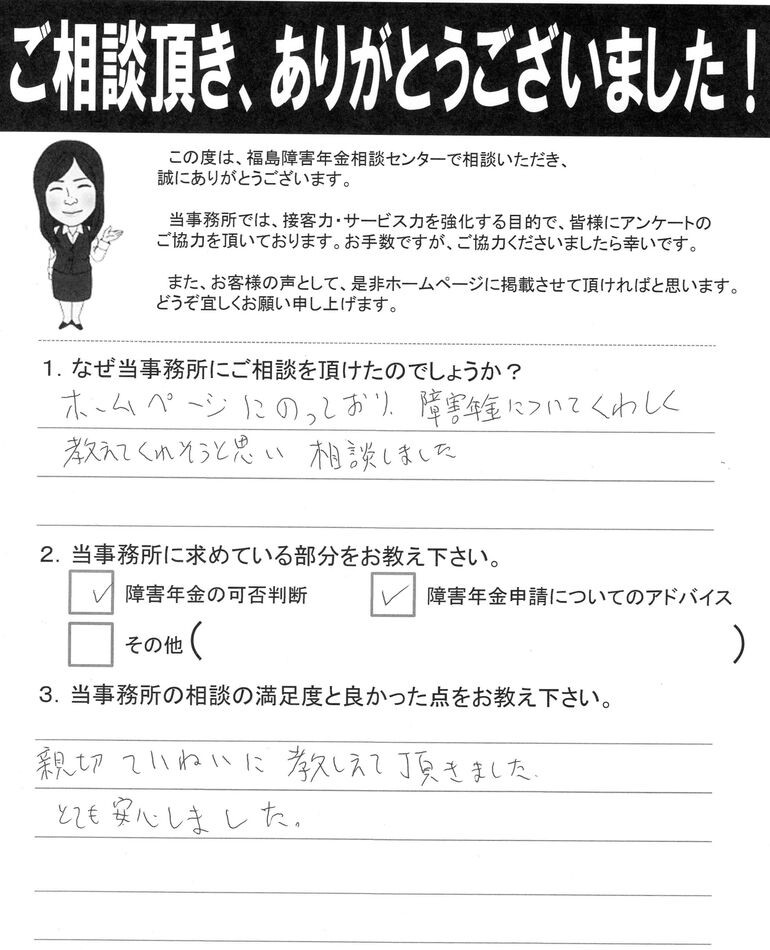 ご相談頂き、ありがとうございました！
この度は、福島障害年金相談センターで相談いただき、
誠にありがとうございます。
当事務所では、接客力・サービス力を強化する目的で、皆様にアンケートの
ご協力を頂いております。お手数ですが、ご協力くださいましたら幸いです。
また、お客様の声として、是非ホームページに掲載させて頂ければと思います。
どうぞ宜しくお願い申し上げます。
1．なぜ当事務所にご相談を頂けたのでしょうか？
ホームページにのっており、障害年金についてくわしく
教えてくれそうと思い 相談しました
2．当事務所に求めている部分をお教え下さい。
✓ 障害年金の可否判断 ✓ 障害年金申請についてのアドバイス
その他（ ）
3．当事務所の相談の満足度と良かった点をお教え下さい。
親切 ていねいに 教しえて頂きました.
とても安心しました。